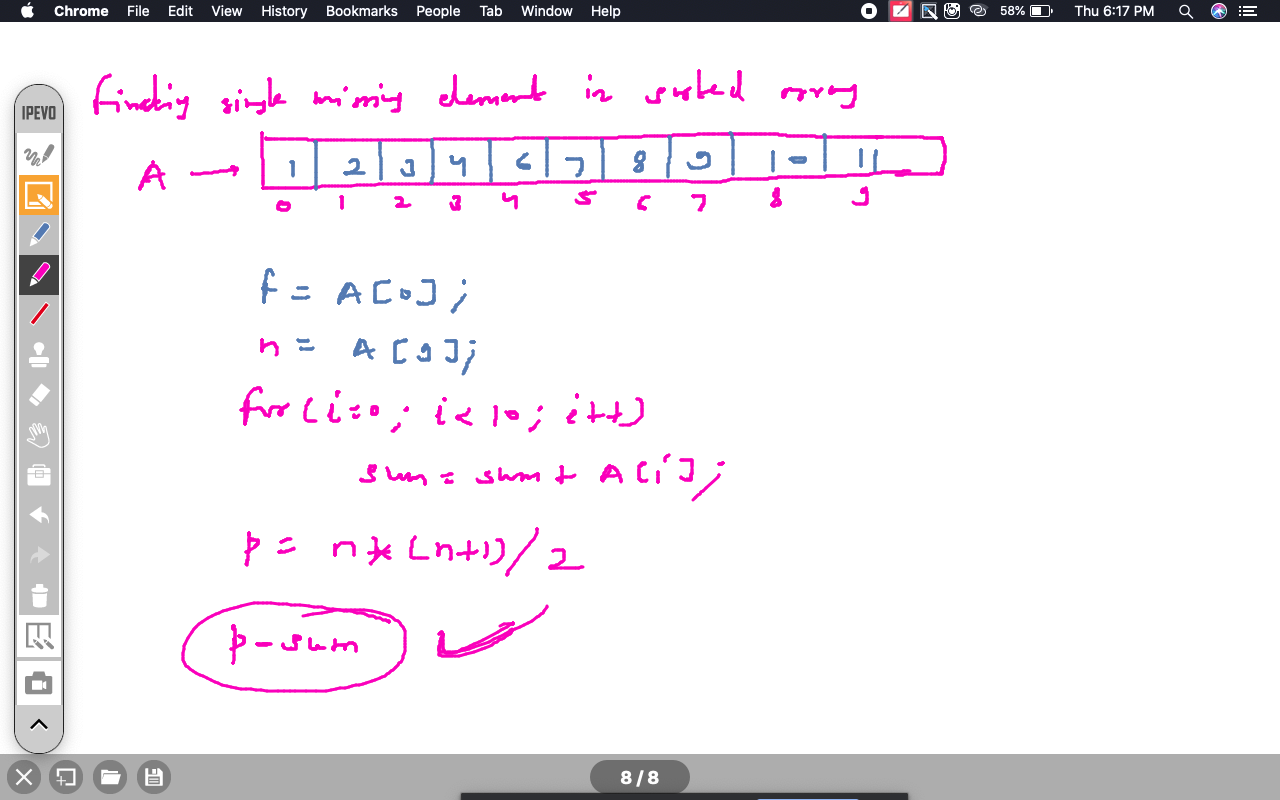 Chrome File Edit View History Bookmarks People Tab Window Help 58% Thu 6:17 PM
IPEVO
Finding single missing element in sorted array
A → 1 2 3 4 6 7 8 9 10 11
0 1 2 3 4 5 6 7 8 9
f = A[0];
n = A[9];
for(i=0; i<10; i++)
sum = sum + A[i];
p = n*(n+1)/2
p-sum
8/8